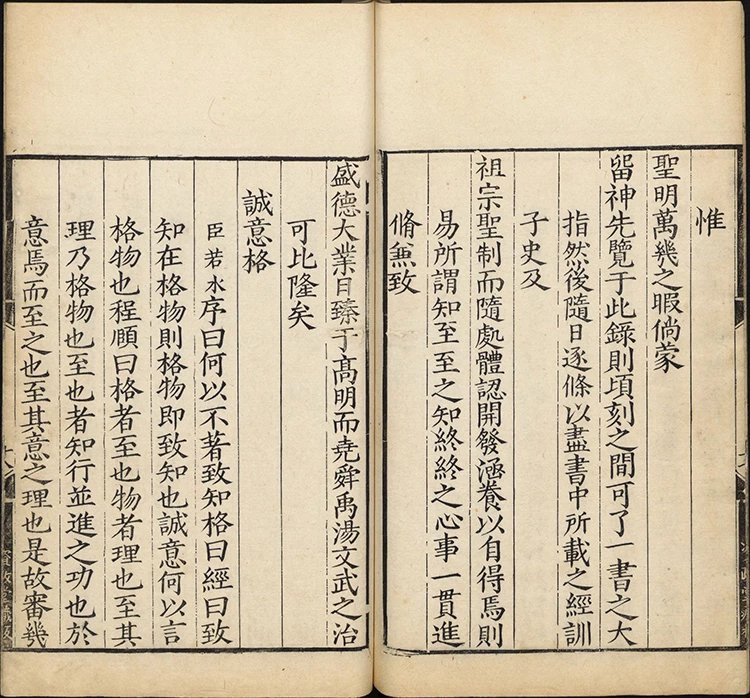 惟
聖明萬幾之暇倘蒙
留神先覽于此錄則頃刻之間可了一書之大
指然後隨日逐條以盡書中所載之經訓
子史及
祖宗聖制而隨處體認開發涵養以自得焉則
易所謂知至至之知終終之心事一貫進
脩兼致
盛德大業日臻于高明而堯舜禹湯文武之治
可比隆矣
誠意格
臣若水序曰何以不著致知格曰經曰致
知在格物則格物即致知也誠意何以言
格物也程頤曰格者至也物者理也至其
理乃格物也至也者知行並進之功也於
意焉而至之也至其意之理也是故審幾